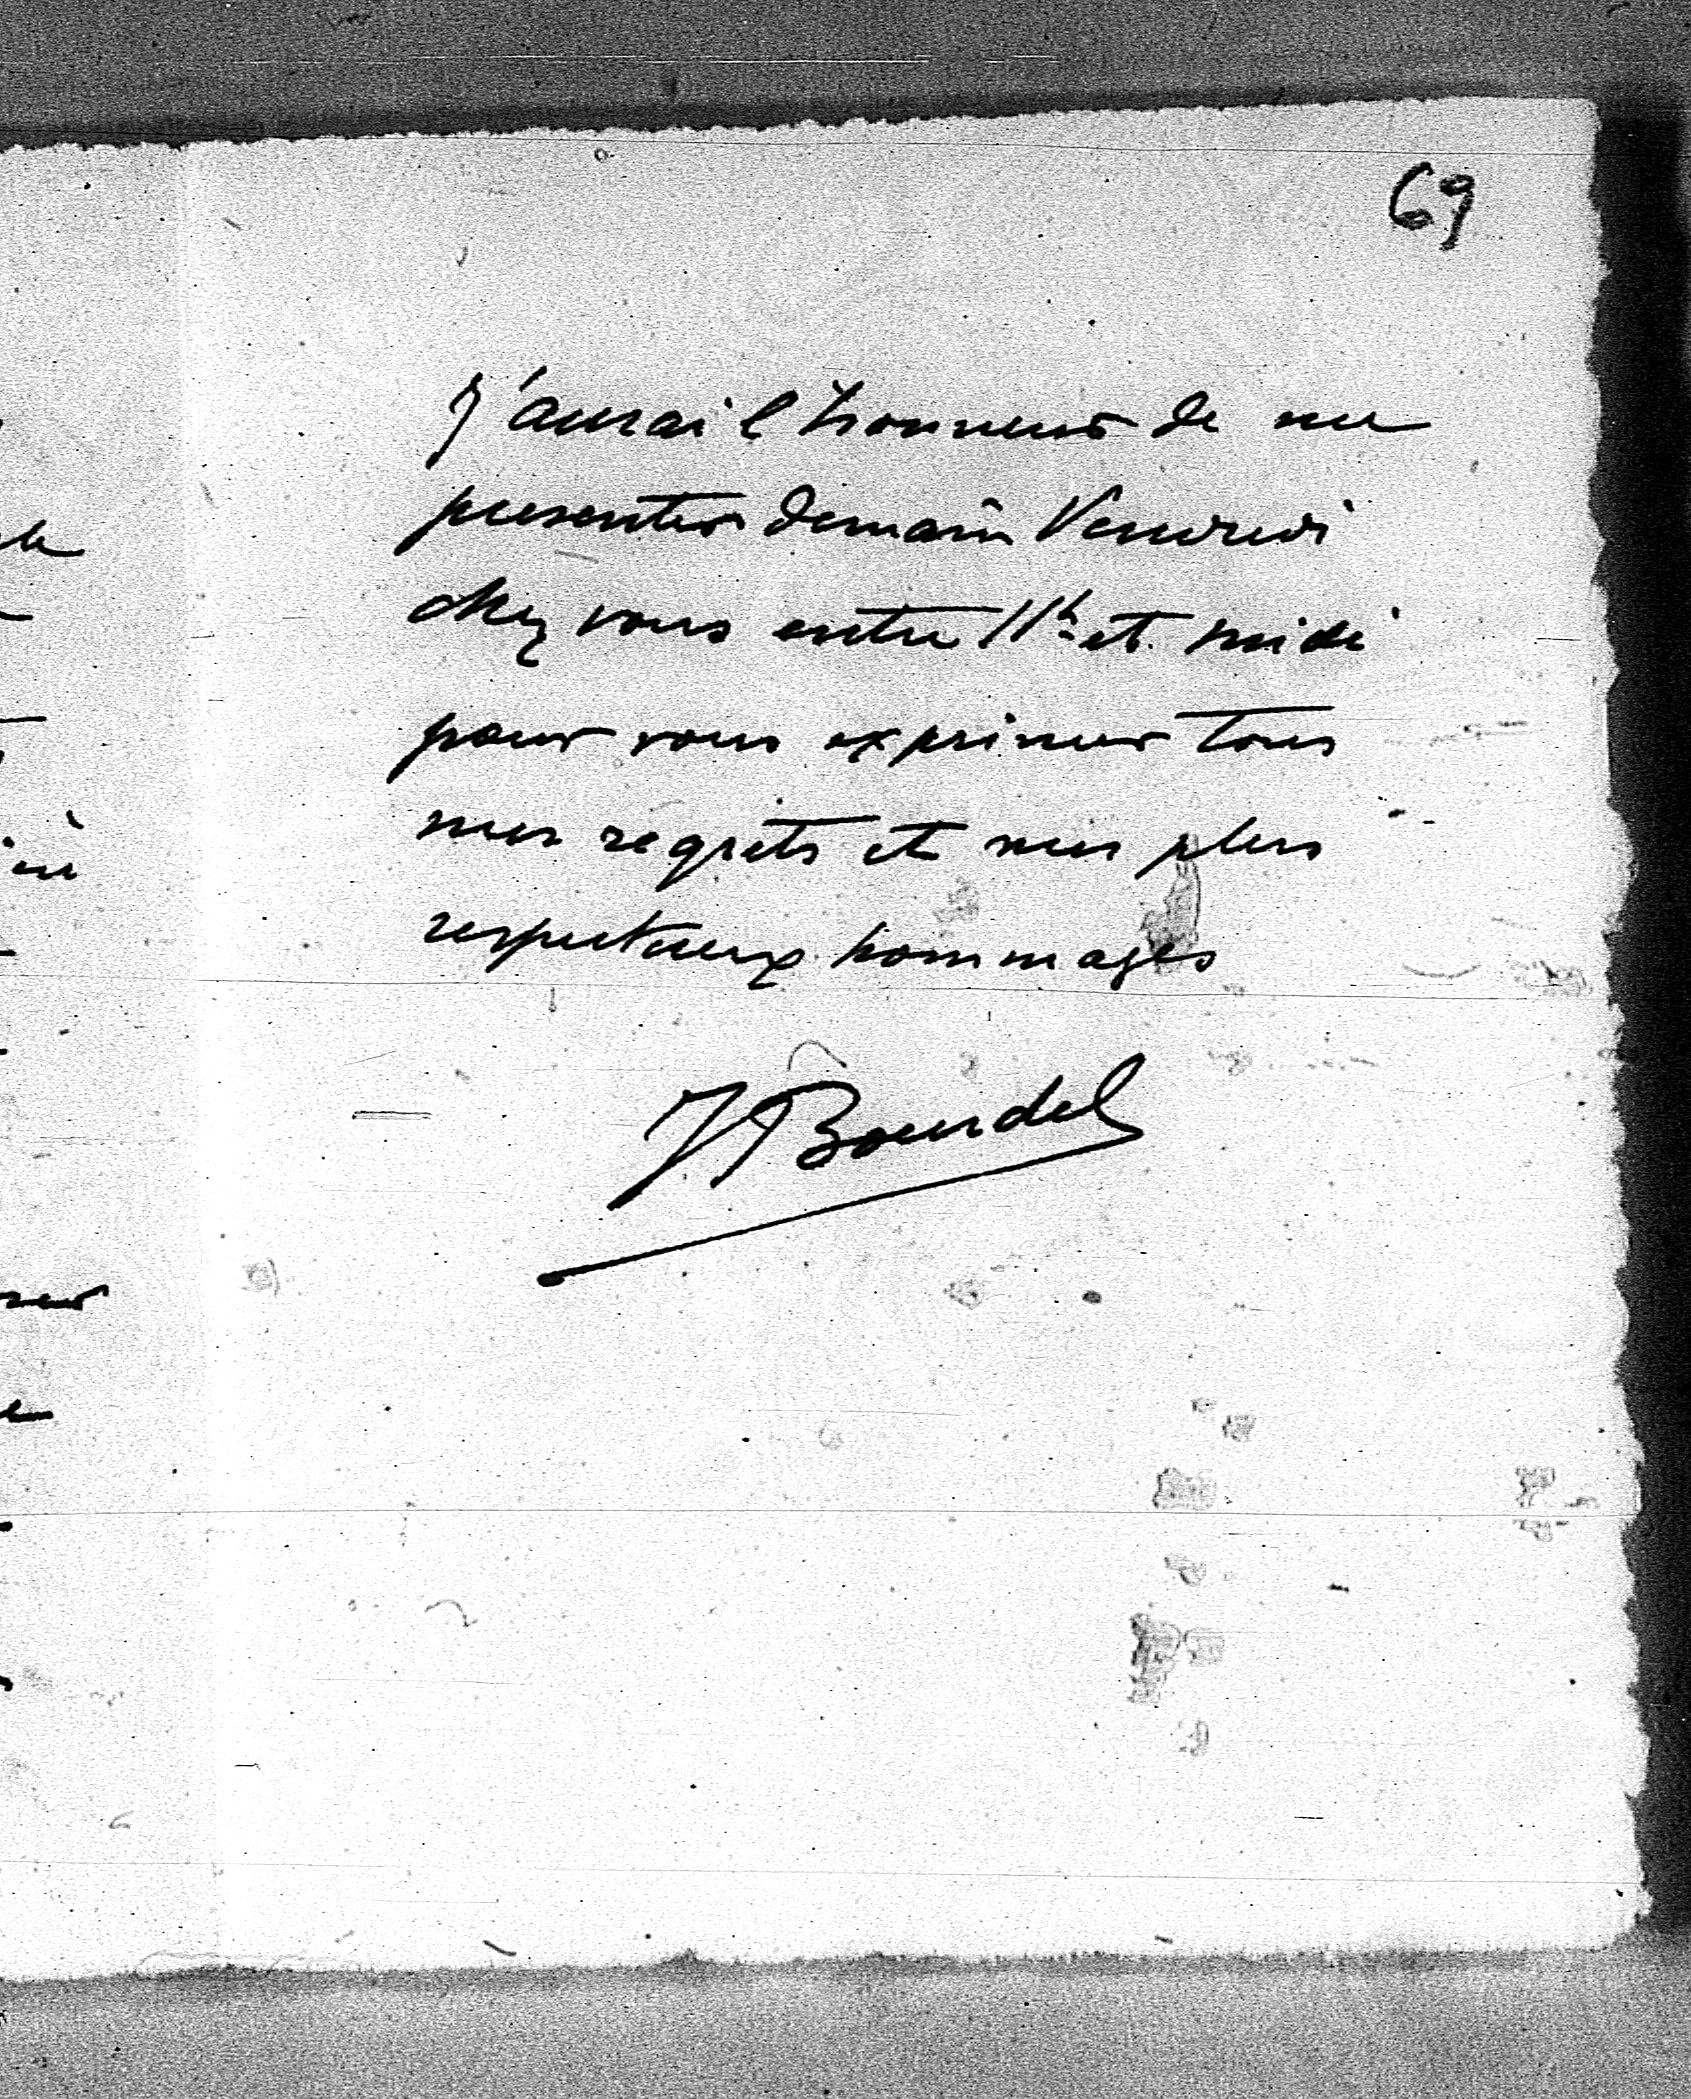 69
J'aurai l'honneur de me
presenter demain Vendredi
chez vous entre 11h et midi
pour vous exprimer tous
mes regrets et mes plus
respectueux hommages
J Bourdel